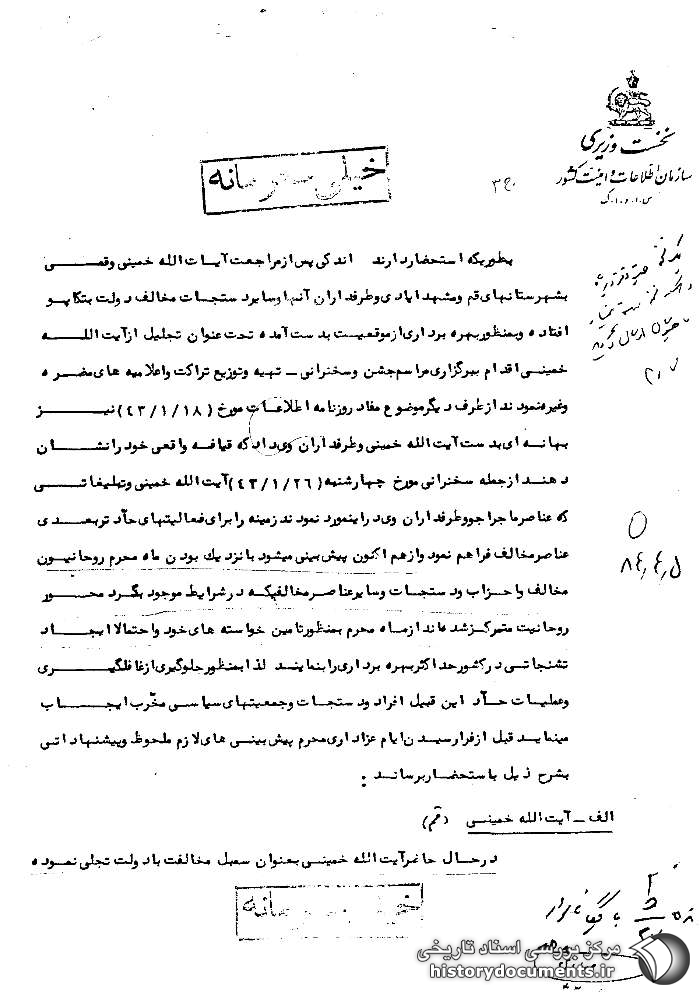 نخست وزیری
سازمان اطلاعات و امنیت کشور
س.ا.و.ا.ک
خیلی محرمانه
بطوریکه استحضار دارند اندکی پس از مراجعت آیات الله خمینی وقمی
بشهرستانهای قم و مشهد ایادی و طرفداران آنها و سایر دستجات مخالف دولت بتکاپو
افتاده و بمنظور بهره برداری از موقعیت بدست آمده تحت عنوان تجلیل از آیت الله
خمینی اقدام ببرگزاری مراسم جشن و سخنرانی - تهیه و توزیع تراکت و اعلامیه های مضره
وغیره نمودند از طرف دیگر موضوع مفاد روزنامه اطلاعات مورخ (۴۳/۱/۱۸) نیز
بهانه ای بدست آیت الله خمینی و طرفداران وی داد که قیافه واقعی خود را نشان
دهند از جمله سخنرانی مورخ چهارشنبه (۴۳/۱/۲۶) آیت الله خمینی و تبلیغاتی
که عناصر ماجراجو و طرفداران وی در اینمورد نمودند زمینه را برای فعالیتهای حادتر بعدی
عناصر مخالف فراهم نمود و از هم اکنون پیش بینی میشود با نزدیک بودن ماه محرم روحانیون
مخالف و احزاب و دستجات و سایر عناصر مخالفیکه در شرایط موجود بگرد محور
روحانیت متمرکز شده اند از ماه محرم بمنظور تامین خواسته های خود و احتمالا ایجاد
تشنجاتی در کشور حداکثر بهره برداری را بنمایند لذا بمنظور جلوگیری از غافلگیری
و عملیات حاد این قبیل افراد و دستجات و جمعیتهای سیاسی مخرّب ایجاب
مینماید قبل از فرا رسیدن ایام عزاداری محرم پیش بینی های لازم ملحوظ و پیشنهاداتی
بشرح ذیل باستحضار برساند :
الف - آیت الله خمینی (قم)
در حال حاضر آیت الله خمینی بعنوان سمبل مخالفت با دولت تجلی نموده
خیلی محرمانه
مرکز بررسی اسناد تاریخی
historydocuments.ir